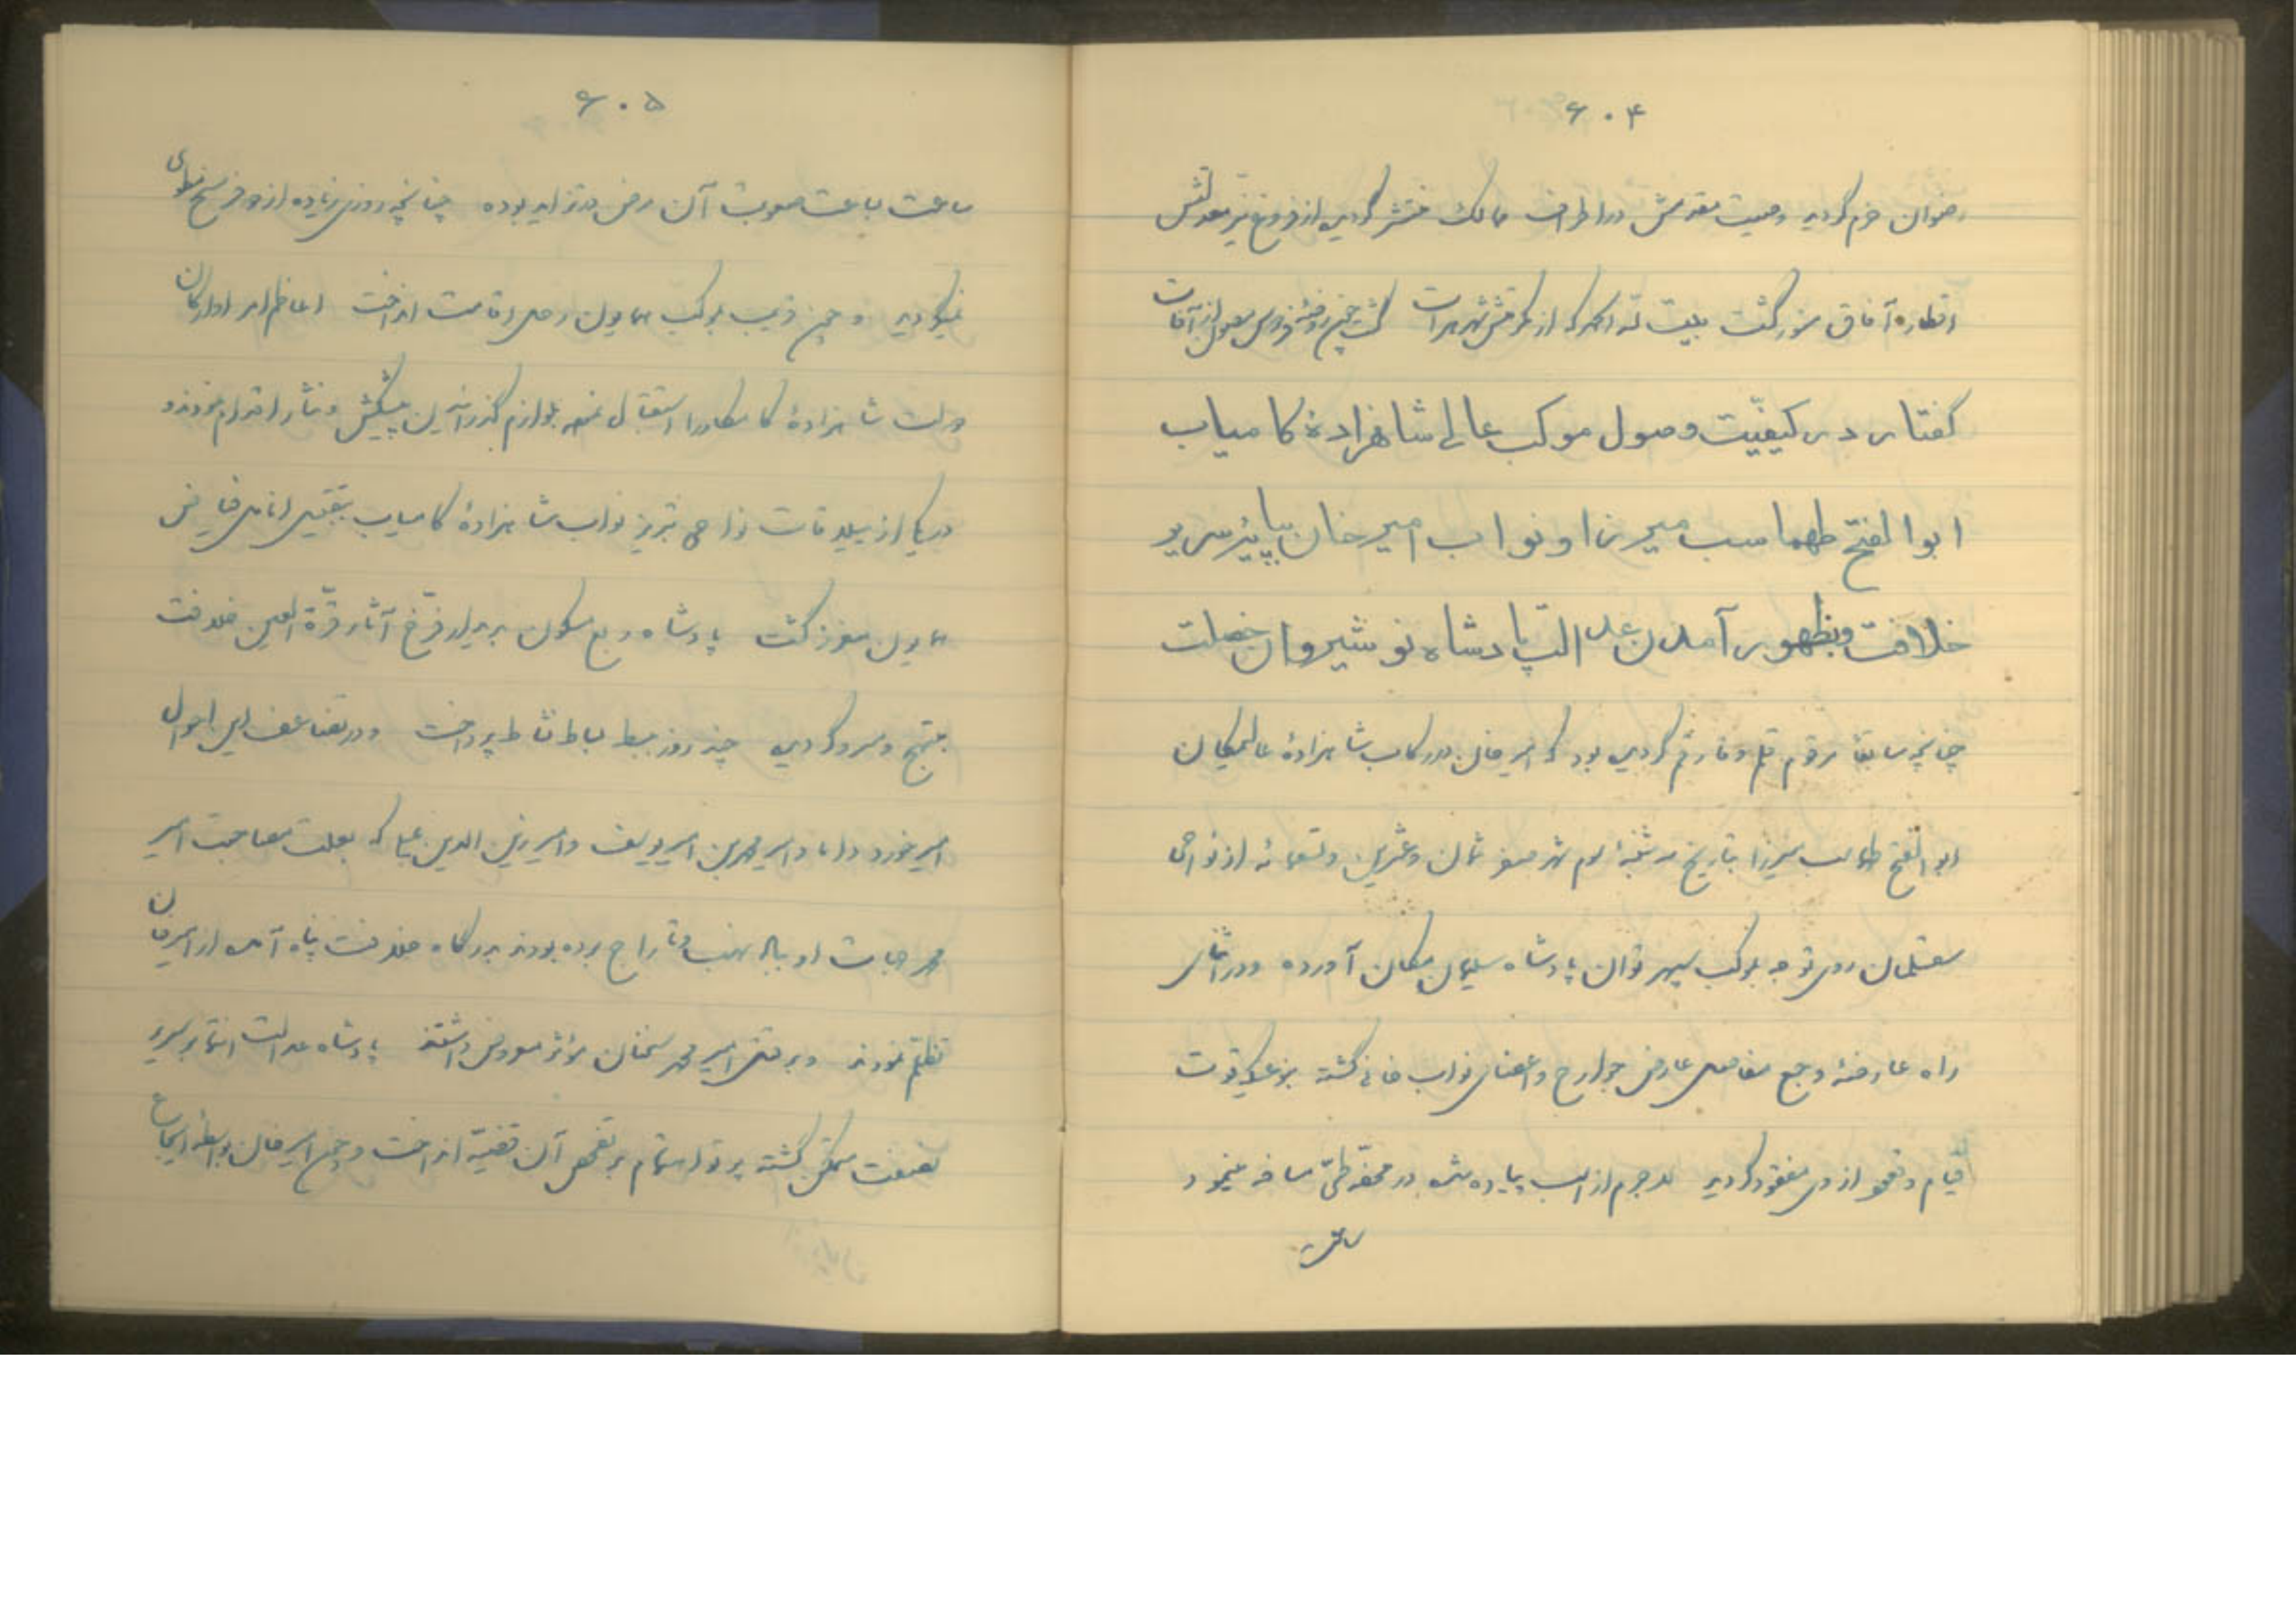 ۶۰۴
رضوان خرم گردید وصیت مقدمش در اطراف ممالک منتشر گردیده از فروغ نیر معدلتش
اقطاره آفاق منور گشت بیت که از مقدمش شهر هرات گشت چون روضهٔ فردوس مصون از آفات
گفتار در کیفیّت وصول موکب عالی شاهزادهٔ کامیاب
ابوالفتح طهماسب میرزا و نواب امیر خان بپایهٔ سریر
خلافت و بظهور آمدن عدالت پادشاه نوشیروان خصلت
چنانچه سابقا مرقوم قلم وقارقم گردیده بود که امیر خان در رکاب شاهزادهٔ عالمیکان
ابوالفتح طهماسب میرزا بتاریخ سه شنبهٔ دوم شهر صفر ثمان و عشرین و تسعمائه از نواحی
سقلمان روی توجه بموکب سپهر توان پادشاه سلیمان مکان آورده و در اثنای
راه عارضهٔ وجع مفاصل عارض جوارح و اعضای نواب خانی گشته بر قوت
قیام و قعود از وی مفقود گردید لاجرم از اسب پیاده شده در محفه طیّ مسافه مینمود
ساعت
۶۰۵
ساعت بساعت صعوبت آن مرض در تزاید بوده چنانچه روزی زیاده از دو فرسخ طی
نمیگردید و چون قریب بموکب همایون رحل اقامت انداخت اعاظم امرا و ارکان
دولت شاهزادهٔ کامکار را استقبال نموده بلوازم گذرانیدن پیشکش و نثار اقدام نمودند و
در یکی از ییلاقات نواحی تبریز نواب شاهزادهٔ کامیاب بتقبیل انامل فیاض
همایون معزز گشت پادشاه ربع مسکون بدیدار فرّخ آثار قرّة العین خلافت
مبتهج و مسرور گردیده چند روز ببسط بساط نشاط پرداخت و در تضاعف این احوال
امیر خورد داماد و امیر محمد بن امیر یوسف و امیر زین الدین علی که بعلت مصاحبت امیر
محمد جهات او بباد نهب و تاراج برده بودند بدرگاه خلافت پناه آمده از امیر خان
تظلم نمودند و بر قتل امیر محمد سخنان مؤثر معروض داشتند پادشاه عدالت انتما بر سریر
نصفت متمکن گشته پرتو اهتمام بر تفحص آن قضیّه انداخت و چون امیر خان بواسطهٔ